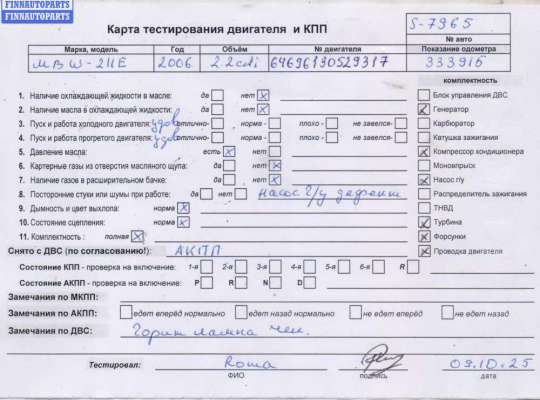 FINNAUTOPARTS
FINNAUTOPARTS
Карта тестирования двигателя и КПП
S-7965
№ авто
Марка, модель Год Объём № двигателя Показание одометра
MBW-211E 2006 2.2cdi 64696130529317 333915
комплектность
1. Наличие охлаждающей жидкости в масле: да нет
2. Наличие масла в охлаждающей жидкости: да нет
3. Пуск и работа холодного двигателя: удов отлично- норма - плохо - не завелся-
4. Пуск и работа прогретого двигателя: удов отлично- норма - плохо - не завелся-
5. Давление масла: есть нет
6. Картерные газы из отверстия масляного щупа: да нет
7. Наличие газов в расширительном бачке: да нет
8. Посторонние стуки или шумы при работе: да нет Насос г/у дефект
9. Дымность и цвет выхлопа: норма
10. Состояние сцепления: норма
11. Комплектность: полная
Блок управления ДВС
Генератор
Карбюратор
Катушка зажигания
Компрессор кондиционера
Моновпрыск
Насос г/у
Распределитель зажигания
ТНВД
Турбина
Форсунки
Проводка двигателя
Снято с ДВС (по согласованию!): АКПП
Состояние КПП - проверка на включение: 1-я 2-я 3-я 4-я 5-я 6-я R
Состояние АКПП - проверка на включение: P R N D
Замечания по МКПП:
Замечания по АКПП: едет вперёд нормально едет назад нормально не едет вперёд не едет назад
Замечания по ДВС: Горит лампа чек.
Тестировал: Roma 09.10.25
ФИО подпись дата